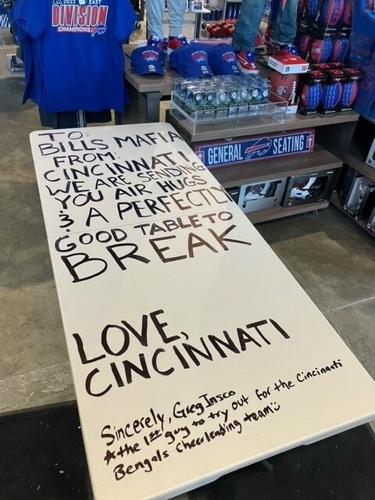 2022 EAST
DIVISION
CHAMPIONS
GENERAL SEATING
TO:
BILLS MAFIA
FROM:
CINCINNATI
WE ARE SENDING
YOU AIR HUGS
& A PERFECTLY
GOOD TABLE TO
BREAK
LOVE,
CINCINNATI
Sincerely, Greg Jasco
*the 1st guy to try out for the Cincinnati
Bengals Cheerleading team: